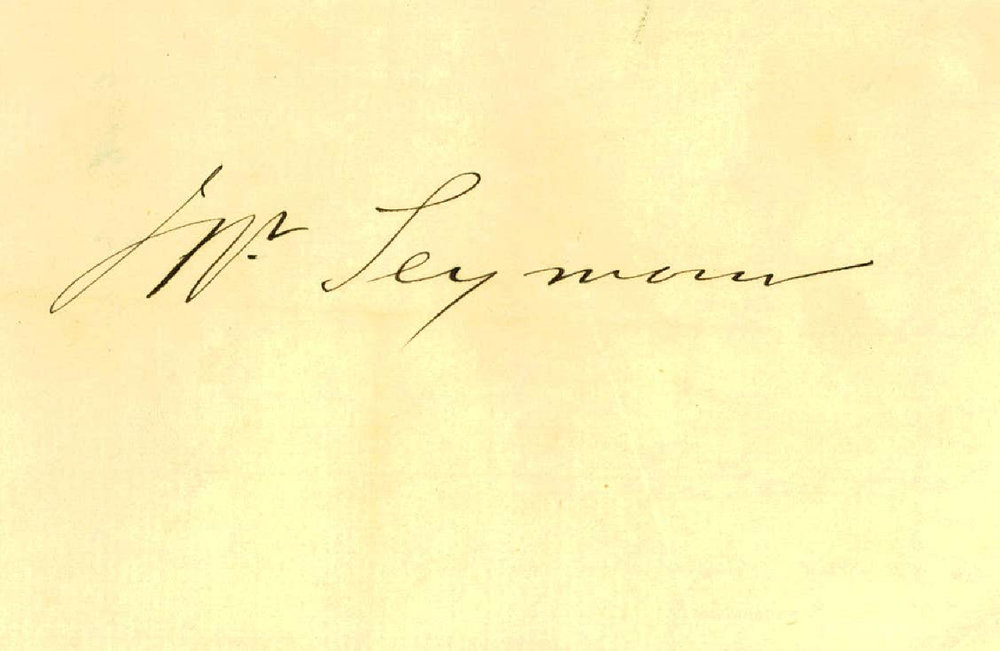 Mr. Seymour